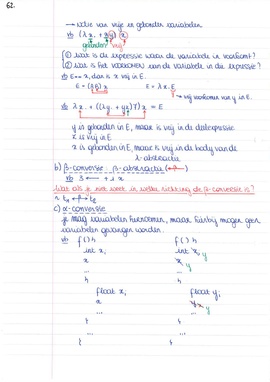 62.
→ idee van vrije en gebonden variabelen
vb (λx. + xy) x
gebonden vrij
① wat is de expressie waar de variabele in voorkomt?
② wat is het voorkomen van de variabele in die expressie?
vb E == x, dan is x vrij in E.
E = (AB) x E = λx. E
→ vrij voorkomen van y in E.
vb λx. + ((λy. + yz) 7) x = E
y is gebonden in E, maar is vrij in de deelexpressie
z is vrij in E
x is gebonden in E, maar is vrij in de body van de
λ-abstractie
b) β-conversie: β-abstractie (←β)
vb 3 ← + λx
Wat als je niet weet in welke richting de β-conversie is?
E₁ ←β→ E₂
c) α-conversie
je mag variabelen hernoemen, maar hierbij mogen geen
variabelen gevangen worden.
vb f() { f() {
int x; int x; y
x x y
... ...
{ {
float x; float y;
x y x y
... ...
} }